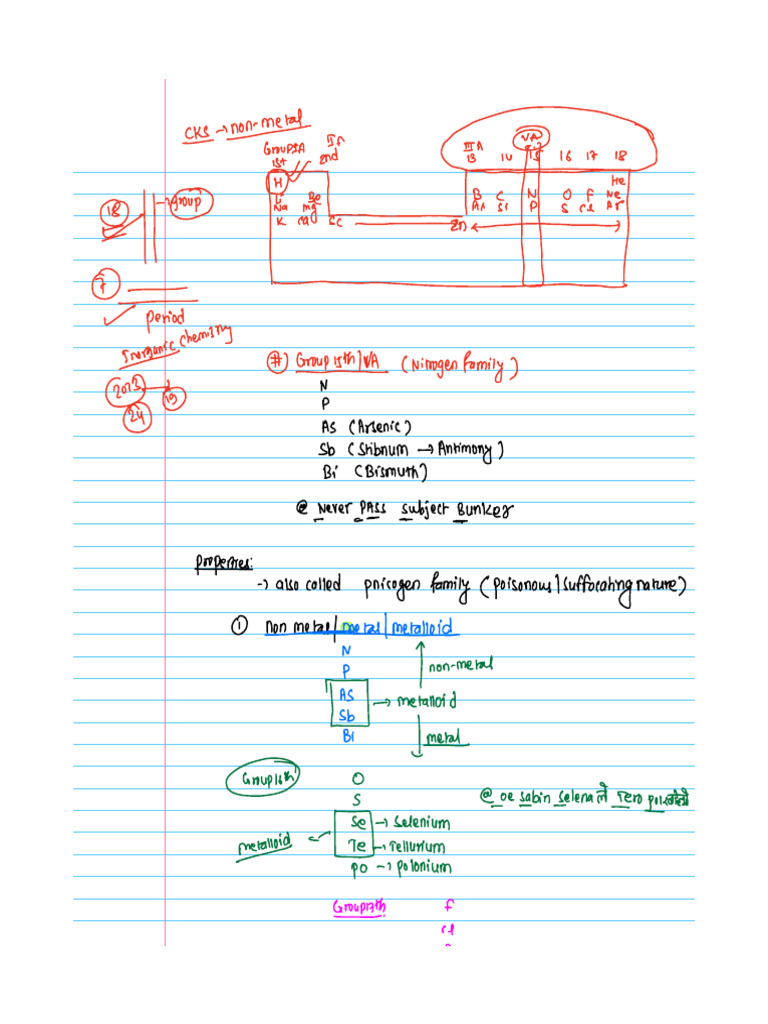 CKS → non-metal
Group IA
1st
IIA
2nd
IIIA
13
14
VA
15
16
17
18
H
He
Li Be
B C N O F Ne
Na Mg
Al Si P S Cl Ar
K Ca Sc
Zn
18
→ group
7
Period
Inorganic chemistry
2023
19
24
#) Group 15th / VA (Nitrogen family)
N
P
As (Arsenic)
Sb (Stibnum → Antimony)
Bi (Bismuth)
@ Never PASS Subject Bunker
Properties:
→ also called pnicogen family (poisonous / suffocating nature)
① non metal / metal / metalloid
N
P
non-metal
As
→ metalloid
Sb
Bi
metal
Group 16th
O
S
@ oe sabin selena ले Tero
Se → Selenium
metalloid
Te → Tellurium
Po → Polonium
Group 17th
F
Cl